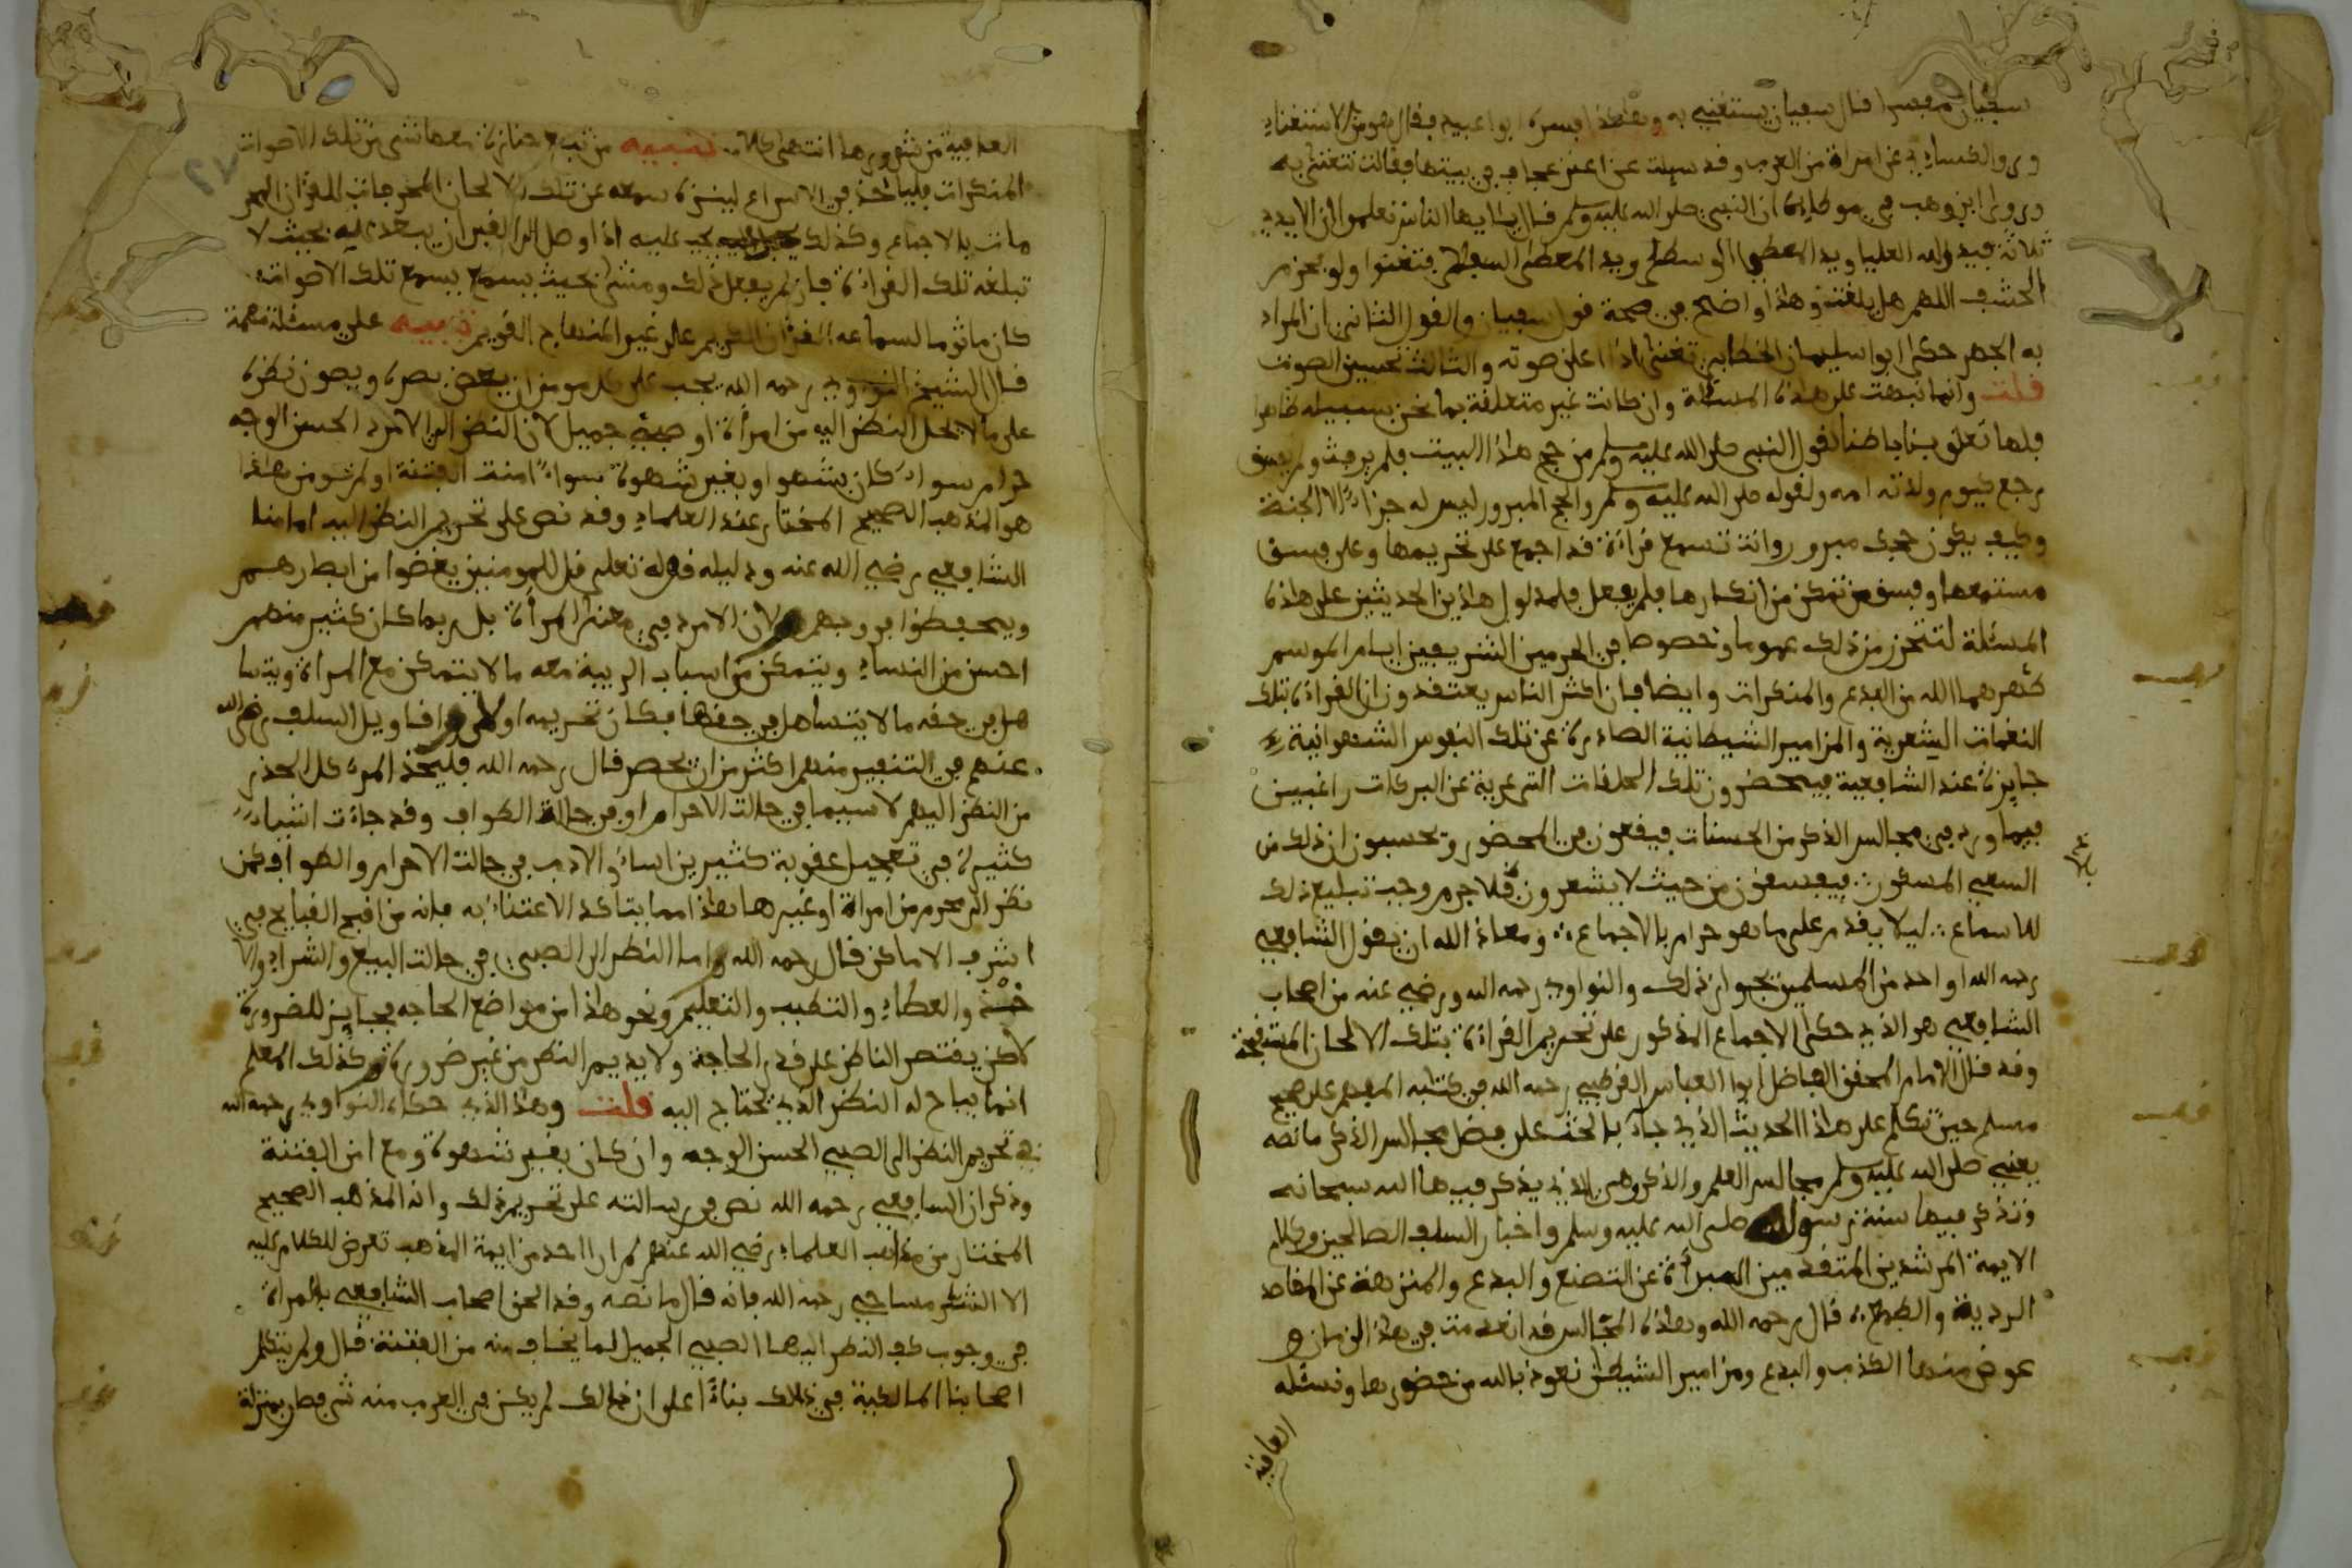 سفيان مفسرا قال سفيان يستغني به وهكذا فسره ابو عبيد فقال هو من الاستغناء
وروا الكساءي عن امراة من العرب وقد سيلت عن اعنز عجاف في بيتها فقالت نتغنى به
وروى ابن وهب في موطاه ان النبي صلى الله عليه وسلم قال يايها الناس تعلموا ان الايدي
ثلاثة فيد الله العليا ويد المعطي الوسطى ويد المعطى السفلى فتغنوا ولو بحزم
الحشف اللهم هل بلغت وهذا واضح في صحة قول سفيان والقول الثاني ان المراد
به الجهر حكى ابو سليمان الخطابي تغنى اذا اعلن صوته والثالث تحسين الصوت
قلت وانما نبهت على هذه المسئلة وان كانت غير متعلقة بما نحن بسبيله ظاهرا
فلها تعلق بنا باطنا لقول النبي صلى الله عليه وسلم من حج هذا البيت فلم يرفث ولم يفسق
رجع كيوم ولدته امه ولقوله صلى الله عليه وسلم والحج المبرور ليس له جزاء الا الجنة
وكيف يكون حجك مبرور وانت تسمع قراءة قد اجمع على تحريمها وعلى فسق
مستمعها وفسق من تمكن من انكارها فلم يفعل فلمدلول هذين الحديثين على هذه
المسئلة لتتحرز من ذلك عموما وخصوصا في الحرمين الشريفين ايام الموسم
طهرهما الله من البدع والمنكرات وايضا فان اكثر الناس يعتقدون ان القراءة بتلك
النغمات الشعرية والمزامير الشيطانية الصادرة عن تلك النفوس الشهوانية
جايزة عند الشافعية فيحضرون تلك الحلقات التي عرية عن البركات راغبين
فيما ورد في مجالس الذكر من الحسنات فيقعون في المحضور وتحسبون ان ذلك من
السعي المشكور فيفسقون من حيث لا يشعرون فلا جرم وجب تبليغ ذلك
للاسماع ليلا يقدم على ما هو حرام بالاجماع ومعاذ الله ان يقول الشافعي
رحمه الله او احد من المسلمين بجواز ذلك والنواوي رحمه الله ورضي عنه من اصحاب
الشافعي هو الذي حكى الاجماع المذكور على تحريم القراءة بتلك الالحان المستقبحة
وقد قال الامام المحقق الفاضل ابوا العباس القرطبي رحمه الله في كتابه المفهم على صحيح
مسلم حين تكلم على هذا الحديث الذي جاء بالحث على فضل مجالس الذكر ما نصه
يعني صلى الله عليه وسلم مجالس العلم والذكر وهي الذي يذكر فيها الله سبحانه
وتذكر فيها سنة رسوله صلى الله عليه وسلم واخبار السلف الصالحين وكلام
الايمة المرشدين المتقدمين المبراة عن التصنع والبدع والمنزهة عن المقاصد
الردية والطمع قال رحمه الله وهذه المجالس قد انعدمت في هذا الزمان و
عوض منها الكذب والبدع ومزامير الشيطان نعوذ بالله من حضورها ونسئله
العافية
العافية من شرورها انتهى كلامه تنبيه من تبع جنازة معها شي من تلك الاصوات
المنكرات فلياخذ في الاسراع لينزه سمعه عن تلك الالحان المخرجات للقرءان المحر
مات بالاجماع وكذلك يجب عليه اذا وصل الى القبر ان يبعد عنه بحيث لا
تبلغه تلك القراءة فان لم يفعل ذلك ومشى بحيث يسمع تلك الاصوات
كان ماثوما لسماعه القرءان الكريم على غير المنهاج القويم تنبيه على مسئلة مهمة
قال الشيخ النووي رحمه الله يجب على كل مومن ان يغض بصره ويصون نظره
على ما لا يحل النظر اليه من امراة او صبي جميل لان النظر الى الامرد الحسن الوجه
حرام سواء كان بشهوا او بغير شهوة سواء امنت الفتنة او لم تومن هذا
هو المذهب الصحيح المختار عند العلماء وقد نص على تحريم النظر اليه امامنا
الشافعي رضي الله عنه ودليله قوله تعلى قل للمومنين يغضوا من ابصارهم
ويحفظوا فروجهم ولان الامرد في معنى المراة بل ربما كان كثير منهم
احسن من النساء ويتمكن من اسباب الريبة معه ما لا يتمكن مع المراة ويتسا
هل في حقه ما لا يتساهل في حقها فكان تحريمه اولى واقاويل السلف رضي الله
عنهم في التنفير منهم اكثر من ان تحصر قال رحمه الله فليحذر المرء كل الحذر
من النظر اليهم لا سيما في حالة الاحرام او في حالة الطواف وقد جاءت اشياء
كثيرة في تعجيل عقوبة كثير من اساء الادب في حالت الاحرام والطواف كمن
نظر الى محرم من امراة او غيرها وهذا مما يتاكد الاعتناء به فانه من اقبح القبايح في
اشرف الاماكن قال رحمه الله واما النظر الى الصبي في حالت البيع والشراء والا
خذ والعطاء والتطبب والتعليم ونحو هذا من مواضع الحاجة فجايز للضرورة
لاكن يقتصر الناظر على قدر الحاجة ولا يديم النظر من غير ضرورة وكذلك المعلم
انما يباح له النظر الذي يحتاج اليه قلت وهذا الذي حكاه النواوي رحمه الله
في تحريم النظر الى الصبي الحسن الوجه وان كان بغير شهوة ومع امن الفتنة
وذكر ان الشافعي رحمه الله نص في رسالته على تحريم ذلك وانه المذهب الصحيح
المختار من مذاهب العلماء رضي الله عنهم لم ار احد من ايمة المذهب تعرض للكلام عليه
الا الشرمساحي رحمه الله فانه قال ما نصه وقد الحق اصحاب الشافعي بالمراة
في وجوب كف النظر اليها الصبي الجميل لما يخاف منه من الفتنة قال ولم يتكلم
اصحابنا المالكية في ذلك بناءا على ان ذلك لم يكن في العرب منه شي فصار بمنزلة